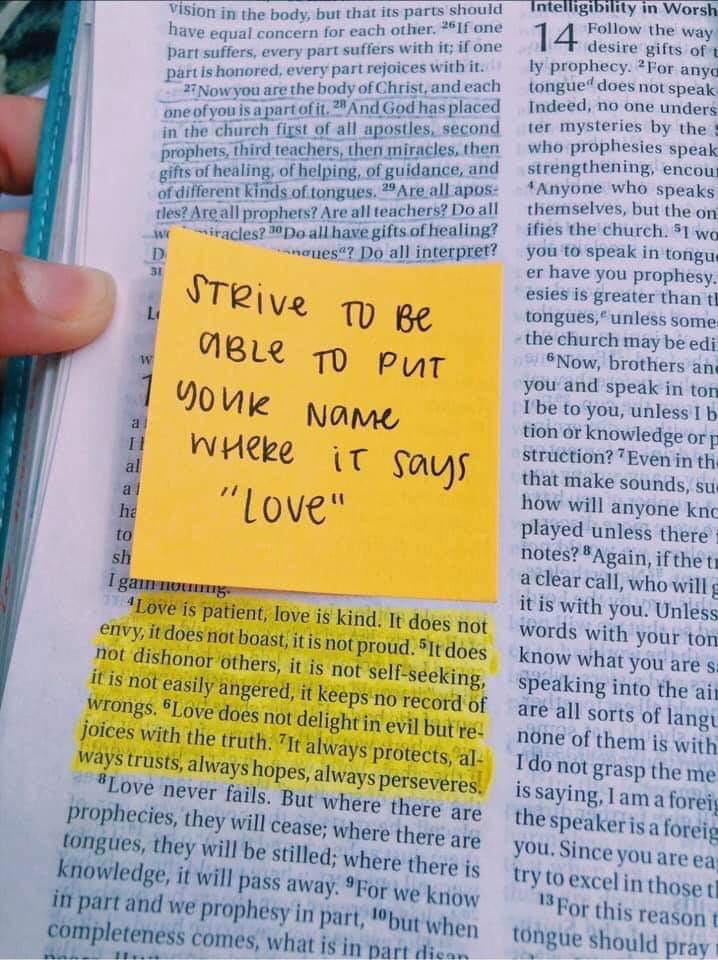 vision in the body, but that its parts should
have equal concern for each other. 26If one
part suffers, every part suffers with it; if one
part is honored, every part rejoices with it.
27Now you are the body of Christ, and each
one of you is a part of it. 28And God has placed
in the church first of all apostles, second
prophets, third teachers, then miracles, then
gifts of healing, of helping, of guidance, and
of different kinds of tongues. 29Are all apos-
tles? Are all prophets? Are all teachers? Do all
miracles? 30Do all have gifts of healing?
Do all interpret?
31
STRIVE TO BE
ABLE TO PUT
YOUR NAME
WHERE IT SAYS
"LOVE"
I gain nothing.
4Love is patient, love is kind. It does not
envy, it does not boast, it is not proud. 5It does
not dishonor others, it is not self-seeking,
it is not easily angered, it keeps no record of
wrongs. 6Love does not delight in evil but re-
joices with the truth. 7It always protects, al-
ways trusts, always hopes, always perseveres.
8Love never fails. But where there are
prophecies, they will cease; where there are
tongues, they will be stilled; where there is
knowledge, it will pass away. 9For we know
in part and we prophesy in part, 10but when
completeness comes, what is in part
Intelligibility in
14 Follow the way
desire gifts of
ly prophecy. 2For
tongued does not speak
Indeed, no one
ter mysteries by the
who prophesies
strengthening,
4Anyone who speaks
themselves, but the
ifies the church. 5I
you to speak in
er have you prophesy.
esies is greater than
tongues,e unless
the church may be
6Now, brothers
you and speak in
I be to you, unless I
tion or knowledge or
struction? 7Even in
that make sounds,
how will anyone
played unless there
notes? 8Again, if the
a clear call, who will
it is with you. Unless
words with your
know what you are
speaking into the
are all sorts of
none of them is with
I do not grasp the
is saying, I am a
the speaker is a
you. Since you are
try to excel in those
13For this reason
tongue should pray